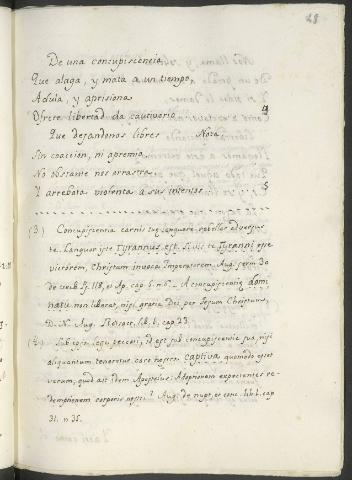 28
De una concupiscencia
Que alaga, y mata a un tiempo,
Aduia, y aprisiona
Ofrece libertad da cautiverio 4
Que dejandonos libres Nota
Sin coaccion, ni apremio
No obstante nos arrastra
Y arrebata violenta a sus intentos 5
(3) Concupiscentia carnis tuę languore rebellat adversus
te. Languor iste Tyrannus est. Si vis te Tyranni esse
victorem, Christum invoca Imperatorem. Aug. serm 30
de verb. Ap. cap. 5. n. 6. - A concupiscentię domi
natu non liberat, nisi gratia Dei, per Jesum Christum,
D. N. Aug.
lib. 6. cap 23.
(4) Sub ipsa legę peccati, id est sub concupiscentia sua, nisi
aliquantum teneretur caro nostra captiva quomodo esset
verum, quod ait idem Apostolus: Adoptionem expectantes re-
demptionem corporis nostri? Aug. de nupt. et conc. lib. 1. cap
31. n 35.